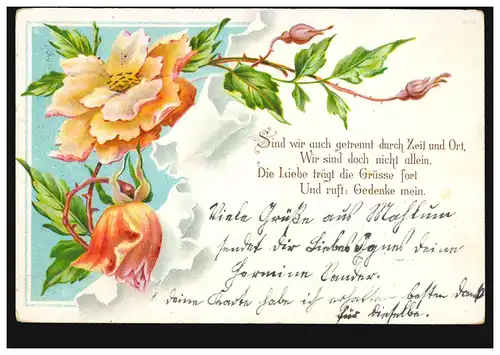 Sind wir auch getrennt durch Zeit und Ort,
Wir sind doch nicht allein.
Die Liebe trägt die Grüsse fort
Und ruft: Gedenke mein.
Viele Grüße aus Mahlum
sendet dir liebes Agnes deine
Hermine Sander.
deine Karte habe ich erhalten besten Dank
für dieselbe.